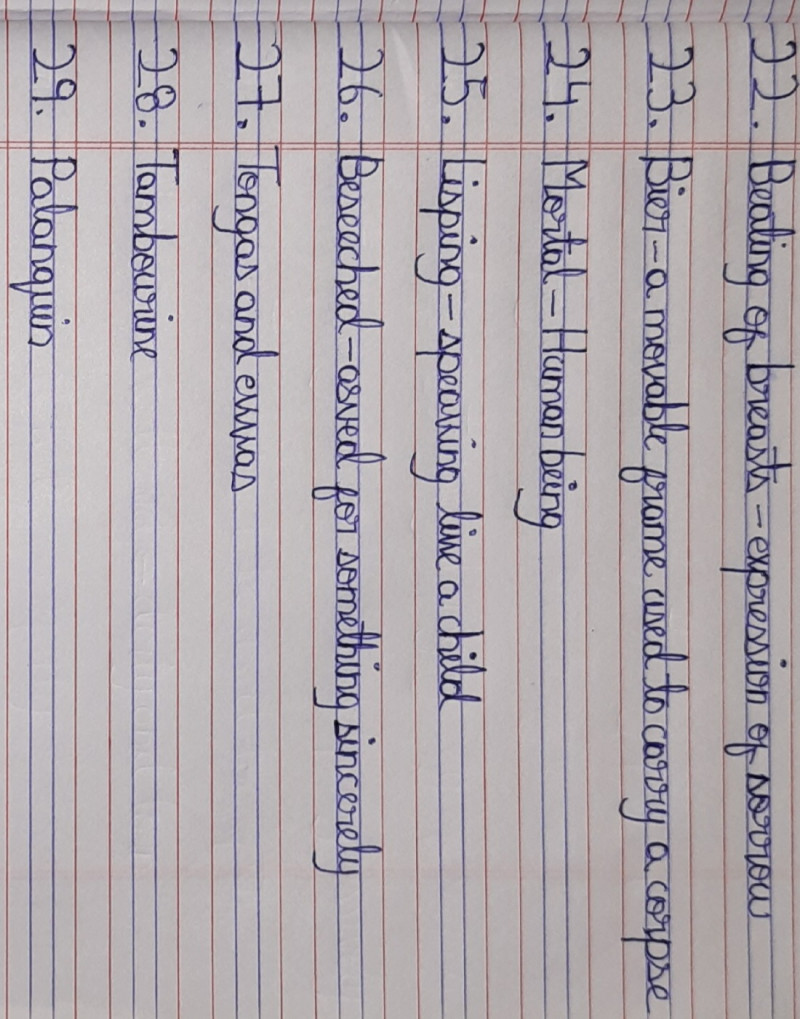 22. Beating of breasts - expression of sorrow
23. Bier - a movable frame used to carry a corpse
24. Mortal - Human being
25. Lisping - speaking like a child
26. Beseeched - asked for something sincerely
27. Tongas and ekkas
28. Tambourine
29. Palanquin